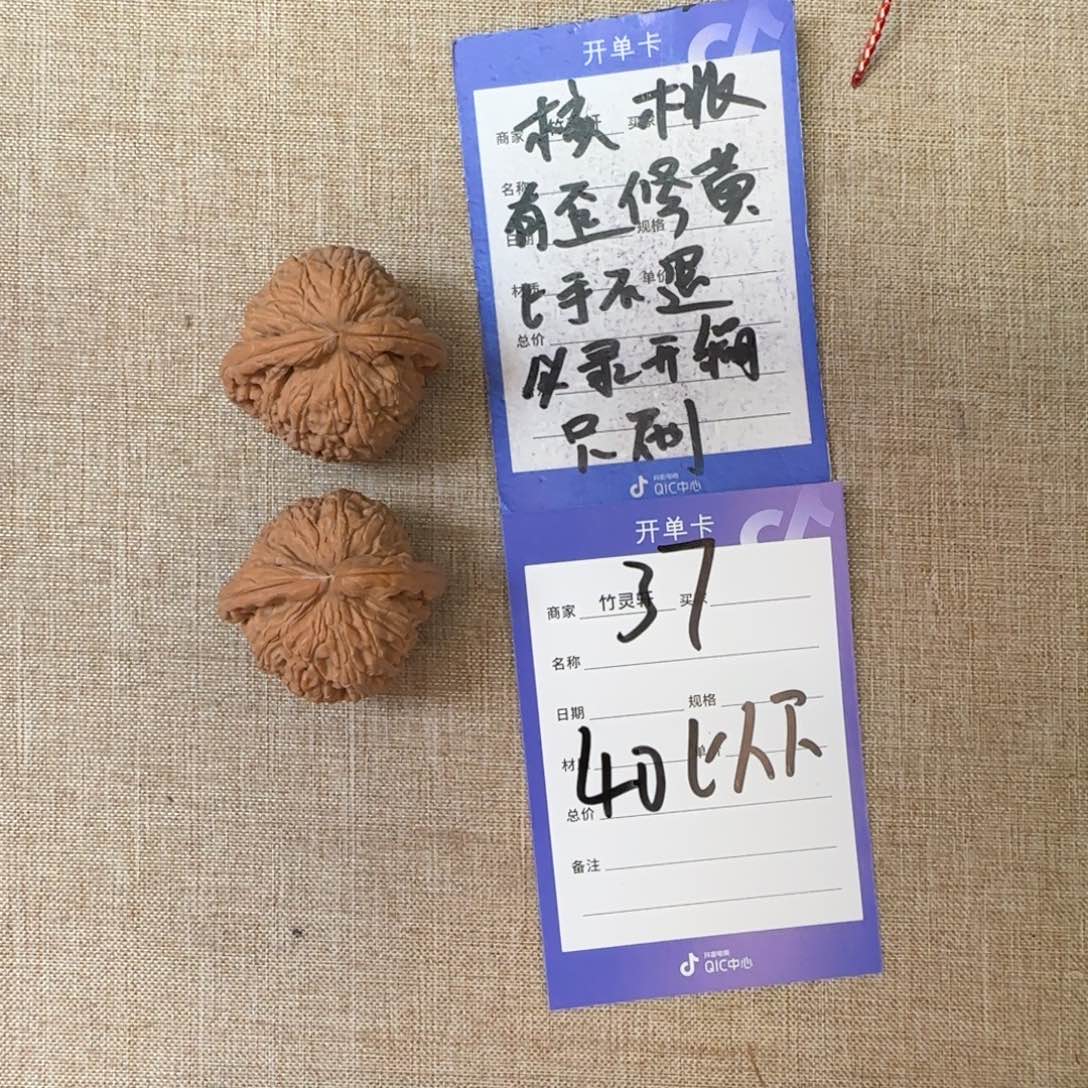 开单卡
核桃
商家 买家
名称
有歪修黄
日期 规格
材质 单价
上手不退
总价
必录开箱
只砸
抖音电商
QIC中心
开单卡
37
商家 竹灵轩 买家
名称
日期 规格
40以下
材质 单价
总价
备注
抖音电商
QIC中心